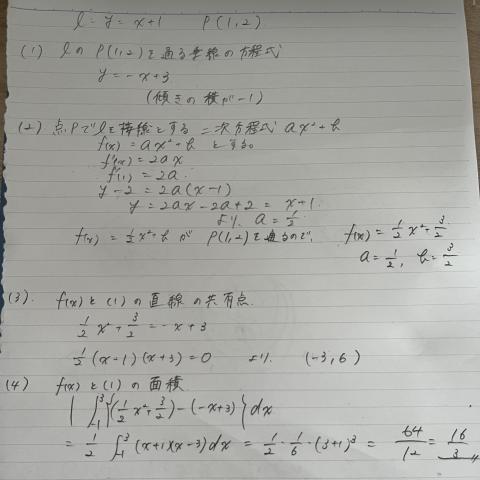 l = y = x+1   P(1,2)
(1) lの P(1,2)を通る垂線の方程式
y = -x+3
(傾きの積が-1)
(2) 点Pでlを接線とする 二次方程式 ax²+b
f(x) = ax²+b とする。
f'(x) = 2ax
f'(1) = 2a.
y-2 = 2a(x-1)
y = 2ax-2a+2 = x+1.
より. a = 1/2
f(x) = 1/2x²+b が P(1,2)を通るので, f(x) = 1/2x²+3/2
a = 1/2, b = 3/2
(3). f(x)と(1)の直線の共有点.
1/2x²+3/2 = -x+3
1/2(x-1)(x+3) = 0 より. (-3,6)
(4) f(x)と(1)の面積
| ∫₋₁³ {(1/2x²+3/2)-(-x+3)} dx
= 1/2 ∫₋₁³ (x+1)(x-3)dx = 1/2・1/6・(3+1)³ = 64/12 = 16/3